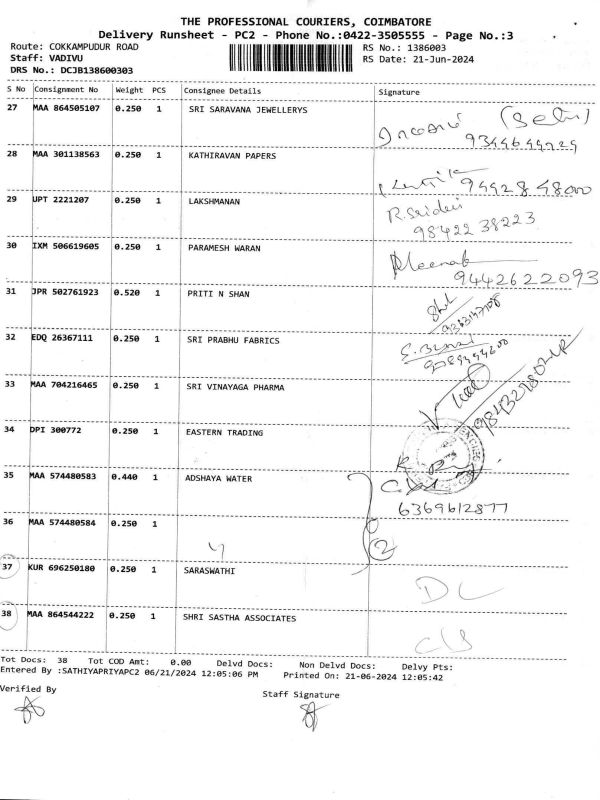 THE PROFESSIONAL COURIERS, COIMBATORE
Delivery Runsheet - PC2 - Phone No.:0422-3505555 - Page No.:3
Route: COKKAMPUDUR ROAD RS No.: 1386003
Staff: VADIVU RS Date: 21-Jun-2024
DRS No.: DCJB138600303
S No Consignment No Weight PCS Consignee Details Signature
27 MAA 864505107 0.250 1 SRI SARAVANA JEWELLERYS
28 MAA 301138563 0.250 1 KATHIRAVAN PAPERS
94428 48000
29 UPT 2221207 0.250 1 LAKSHMANAN R.Sridevi
98422 38223
30 IXM 506619605 0.250 1 PARAMESH WARAN
9442622093
31 JPR 502761923 0.520 1 PRITI N SHAN
32 EDQ 26367111 0.250 1 SRI PRABHU FABRICS
33 MAA 704216465 0.250 1 SRI VINAYAGA PHARMA
34 DPI 300772 0.250 1 EASTERN TRADING
35 MAA 574480583 0.440 1 ADSHAYA WATER
6369612877
36 MAA 574480584 0.250 1
2
37 KUR 696250180 0.250 1 SARASWATHI DL
38 MAA 864544222 0.250 1 SHRI SASTHA ASSOCIATES
Tot Docs: 38 Tot COD Amt: 0.00 Delvd Docs: Non Delvd Docs: Delvy Pts:
Entered By :SATHIYAPRIYAPC2 06/21/2024 12:05:06 PM Printed On: 21-06-2024 12:05:42
Verified By Staff Signature